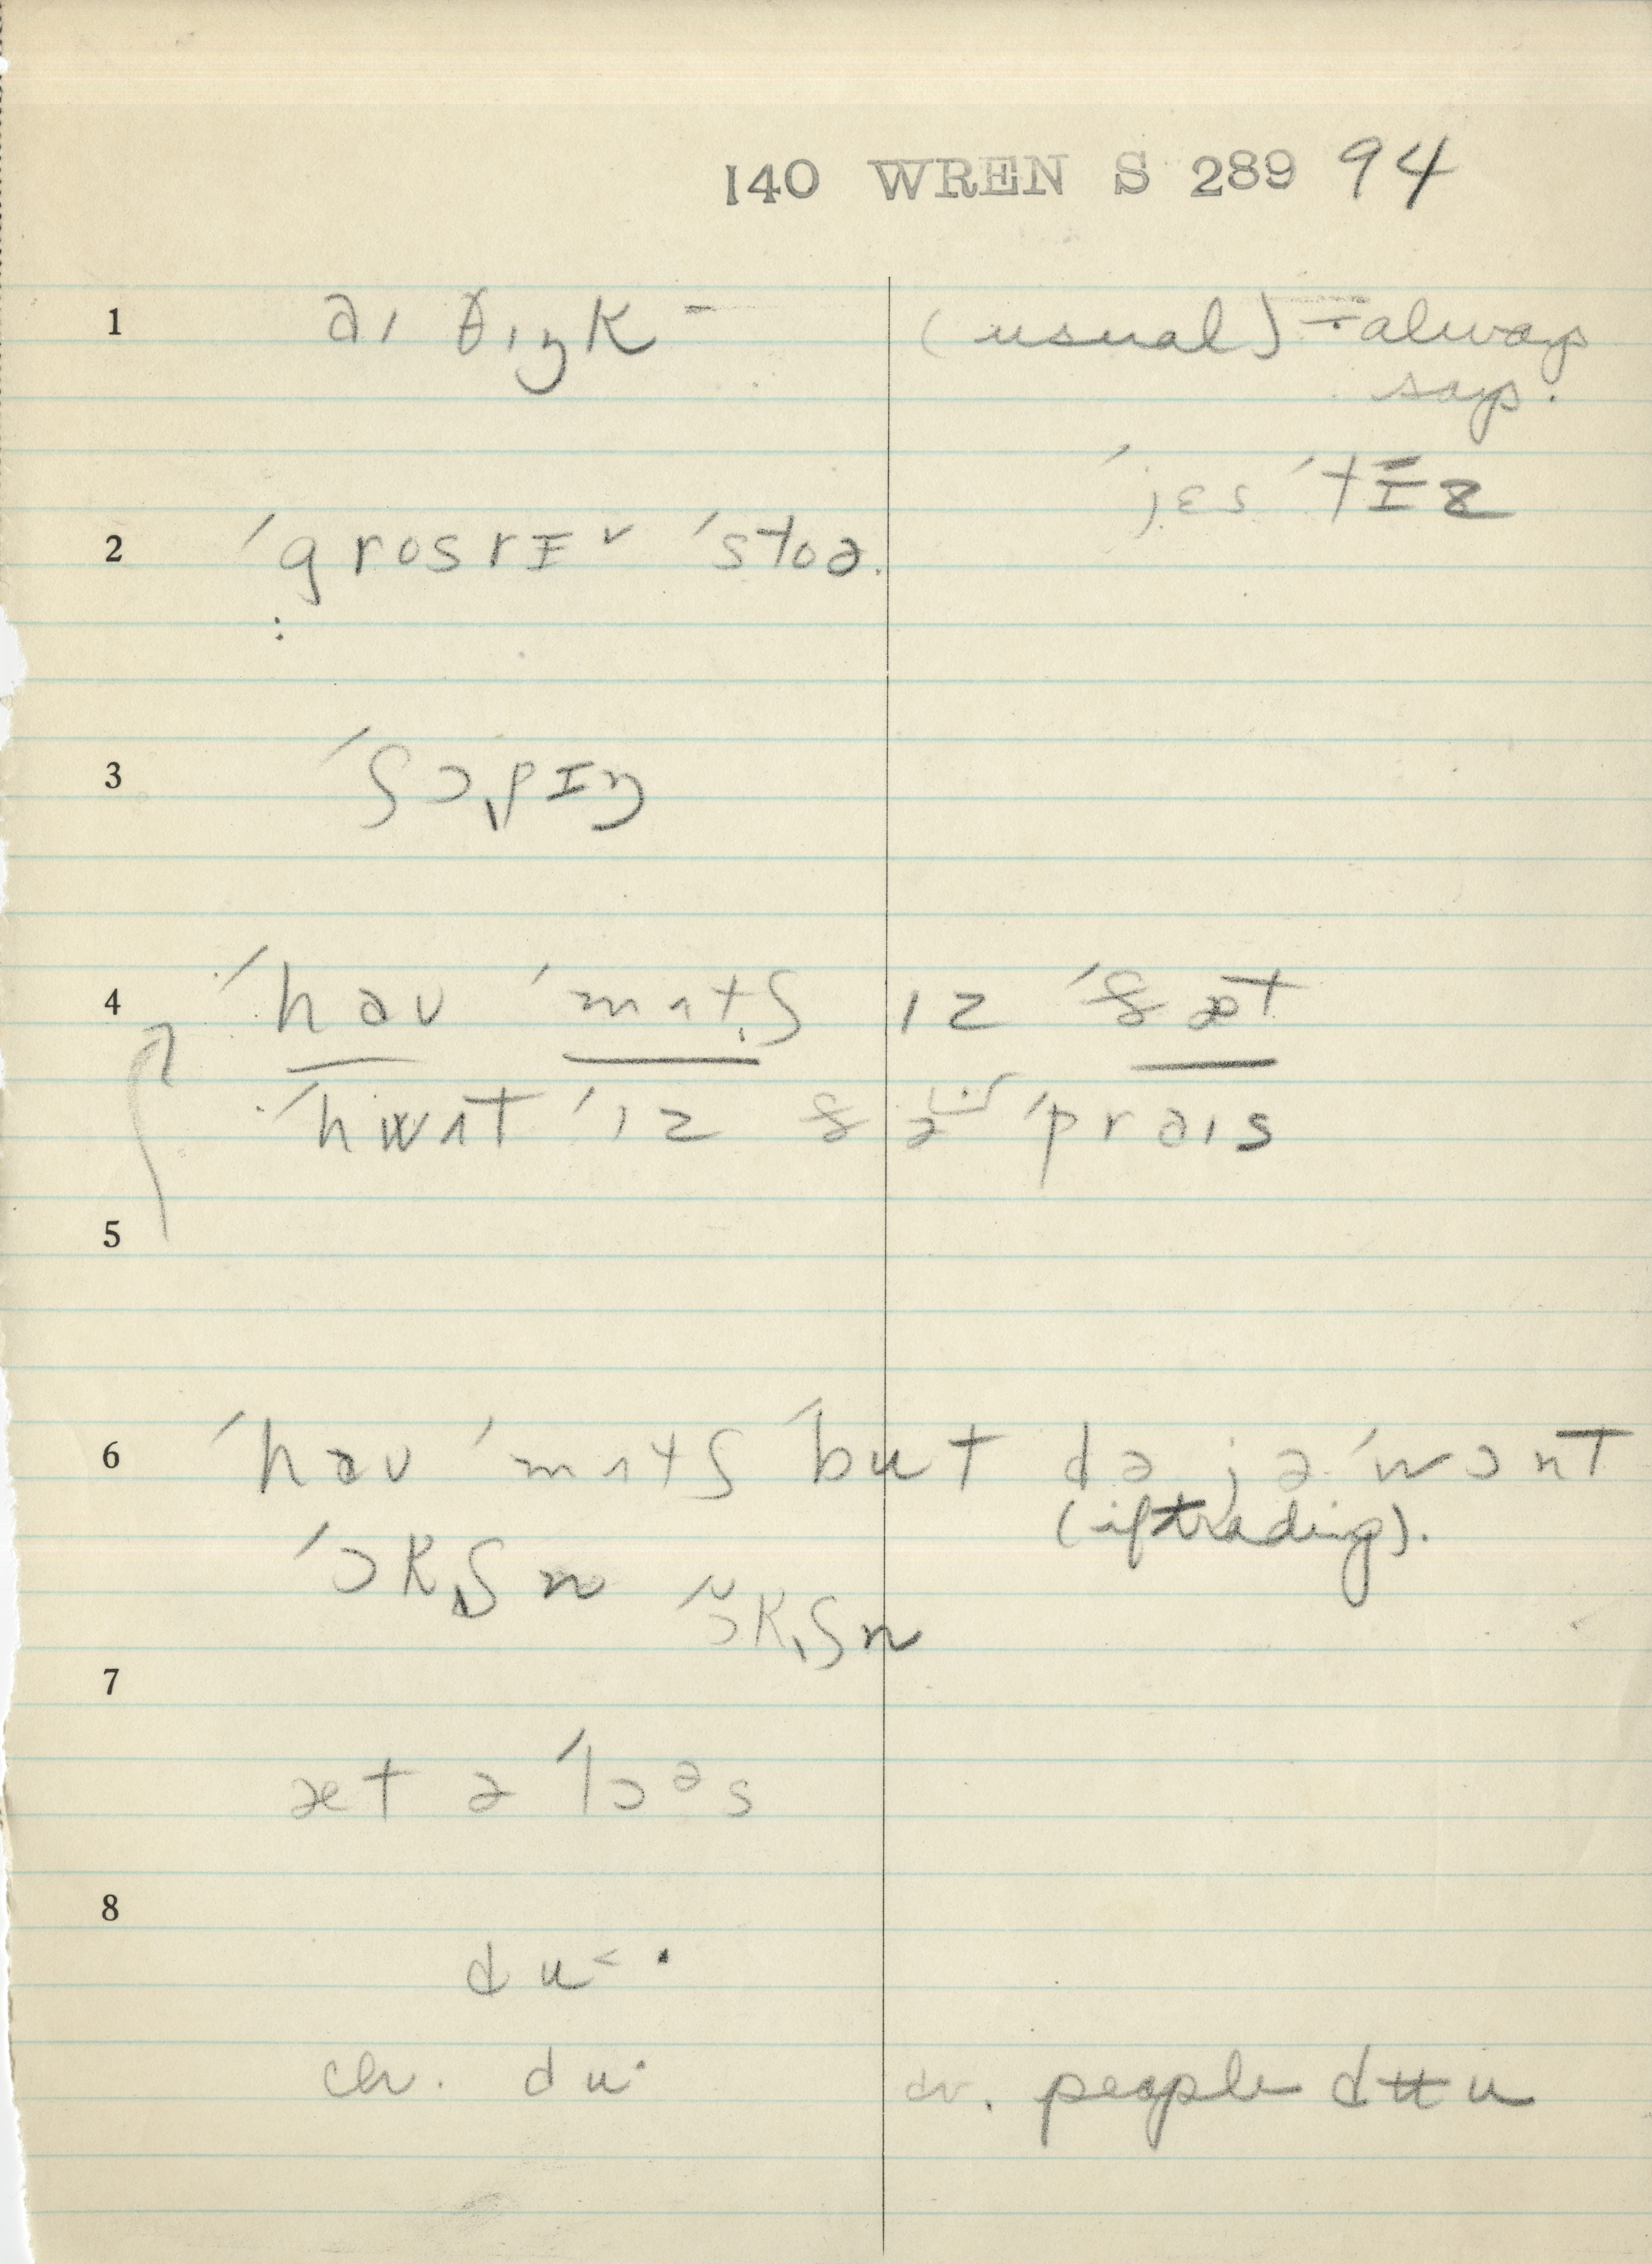 140 WREN S 289 94
1 aɪ θɪŋk - (usual) = always
says.
ˈjɛs ˈtɪz
2 ˈgrosrɪ ˈstoə.
3 ˈʃɔpɪŋ
4 ˈhaʊ ˈmʌtʃ ɪz ˈðæt
ˈhwʌt ˈɪz ðə ˈpraɪs
5
6 ˈhaʊ ˈmʌtʃ ˈbut də jə ˈwɔnt
(if trading).
ˈɔkʃn ˈɔkʃn
7
æt ə ˈlɔᵊs
8
du˂ ·
ch. du· av. people dʉu